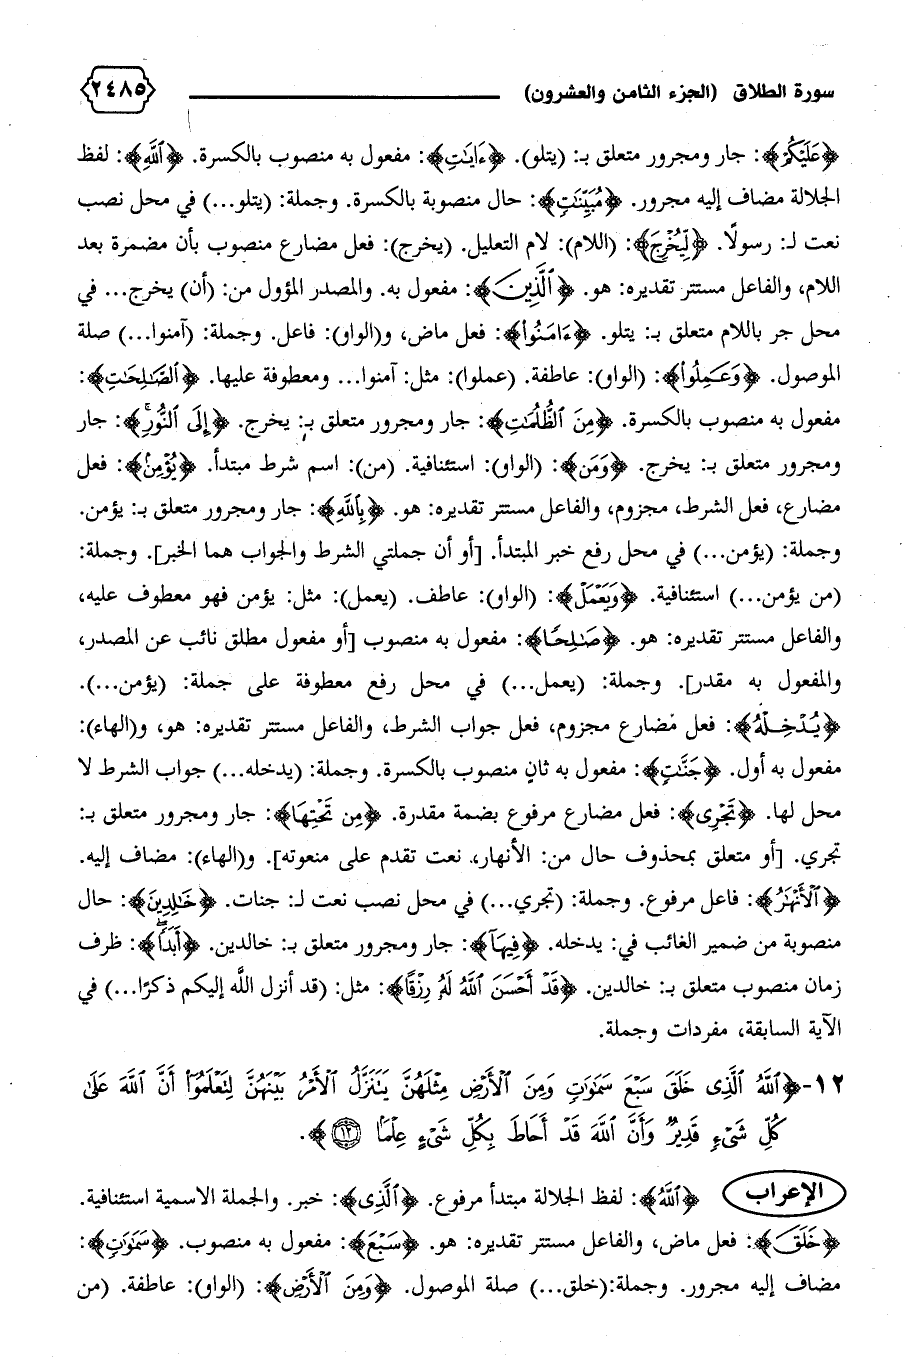 سورة الطلاق (الجزء الثامن والعشرون) ٢٤٨٥
﴿عَلَيْكُمْ﴾: جار ومجرور متعلق بـ: (يتلو). ﴿ءَايَٰتِ﴾: مفعول به منصوب بالكسرة. ﴿ٱللَّهِ﴾: لفظ
الجلالة مضاف إليه مجرور. ﴿مُبَيِّنَٰتٍ﴾: حال منصوبة بالكسرة. وجملة: (يتلو...) في محل نصب
نعت لـ: رسولًا. ﴿لِّيُخْرِجَ﴾: (اللام): لام التعليل. (يخرج): فعل مضارع منصوب بأن مضمرة بعد
اللام، والفاعل مستتر تقديره: هو. ﴿ٱلَّذِينَ﴾: مفعول به. والمصدر المؤول من: (أن) يخرج... في
محل جر باللام متعلق بـ: يتلو. ﴿ءَامَنُوا۟﴾: فعل ماض، و(الواو): فاعل. وجملة: (آمنوا...) صلة
الموصول. ﴿وَعَمِلُوا۟﴾: (الواو): عاطفة. (عملوا): مثل: آمنوا... ومعطوفة عليها. ﴿ٱلصَّٰلِحَٰتِ﴾:
مفعول به منصوب بالكسرة. ﴿مِنَ ٱلظُّلُمَٰتِ﴾: جار ومجرور متعلق بـ: يخرج. ﴿إِلَى ٱلنُّورِ ۚ﴾: جار
ومجرور متعلق بـ: يخرج. ﴿وَمَن﴾: (الواو): استئنافية. (من): اسم شرط مبتدأ. ﴿يُؤْمِنۢ﴾: فعل
مضارع، فعل الشرط، مجزوم، والفاعل مستتر تقديره: هو. ﴿بِٱللَّهِ﴾: جار ومجرور متعلق بـ: يؤمن.
وجملة: (يؤمن...) في محل رفع خبر المبتدأ. [أو أن جملتي الشرط والجواب هما الخبر]. وجملة:
(من يؤمن...) استئنافية. ﴿وَيَعْمَلْ﴾: (الواو): عاطف. (يعمل): مثل: يؤمن فهو معطوف عليه،
والفاعل مستتر تقديره: هو. ﴿صَٰلِحًا﴾: مفعول به منصوب [أو مفعول مطلق نائب عن المصدر،
والمفعول به مقدر]. وجملة: (يعمل...) في محل رفع معطوفة على جملة: (يؤمن...).
﴿يُدْخِلْهُ﴾: فعل مضارع مجزوم، فعل جواب الشرط، والفاعل مستتر تقديره: هو، و(الهاء):
مفعول به أول. ﴿جَنَّٰتٍ﴾: مفعول به ثانٍ منصوب بالكسرة. وجملة: (يدخله...) جواب الشرط لا
محل لها. ﴿تَجْرِى﴾: فعل مضارع مرفوع بضمة مقدرة. ﴿مِن تَحْتِهَا﴾: جار ومجرور متعلق بـ:
تجري. [أو متعلق بمحذوف حال من: الأنهار، نعت تقدم على منعوته]. و(الهاء): مضاف إليه.
﴿ٱلْأَنْهَٰرُ﴾: فاعل مرفوع. وجملة: (تجري...) في محل نصب نعت لـ: جنات. ﴿خَٰلِدِينَ﴾: حال
منصوبة من ضمير الغائب في: يدخله. ﴿فِيهَآ﴾: جار ومجرور متعلق بـ: خالدين. ﴿أَبَدًا ۖ﴾: ظرف
زمان منصوب متعلق بـ: خالدين. ﴿قَدْ أَحْسَنَ ٱللَّهُ لَهُۥ رِزْقًا﴾: مثل: (قد أنزل اللَّه إليكم ذكرًا...) في
الآية السابقة، مفردات وجملة.
١٢-﴿ٱللَّهُ ٱلَّذِى خَلَقَ سَبْعَ سَمَٰوَٰتٍ وَمِنَ ٱلْأَرْضِ مِثْلَهُنَّ يَتَنَزَّلُ ٱلْأَمْرُ بَيْنَهُنَّ لِتَعْلَمُوٓا۟ أَنَّ ٱللَّهَ عَلَىٰ
كُلِّ شَىْءٍ قَدِيرٌ وَأَنَّ ٱللَّهَ قَدْ أَحَاطَ بِكُلِّ شَىْءٍ عِلْمًۢا ١٢﴾.
الإعراب ﴿ٱللَّهُ﴾: لفظ الجلالة مبتدأ مرفوع. ﴿ٱلَّذِى﴾: خبر. والجملة الاسمية استئنافية.
﴿خَلَقَ﴾: فعل ماض، والفاعل مستتر تقديره: هو. ﴿سَبْعَ﴾: مفعول به منصوب. ﴿سَمَٰوَٰتٍ﴾:
مضاف إليه مجرور. وجملة:(خلق...) صلة الموصول. ﴿وَمِنَ ٱلْأَرْضِ﴾: (الواو): عاطفة. (من